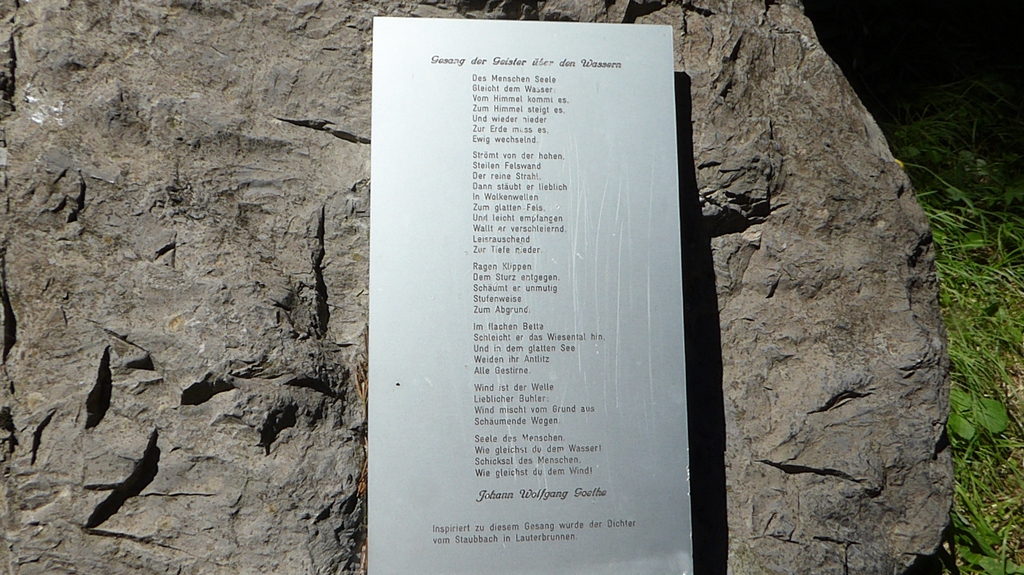 Gesang der Geister über den Wassern
Des Menschen Seele
Gleicht dem Wasser:
Vom Himmel kommt es,
Zum Himmel steigt es,
Und wieder nieder
Zur Erde muss es,
Ewig wechselnd.
Strömt von der hohen,
Steilen Felswand
Der reine Strahl,
Dann stäubt er lieblich
In Wolkenwellen
Zum glatten Fels,
Und leicht empfangen
Wallt er verschleiernd,
Leisrauschend
Zur Tiefe nieder.
Ragen Klippen
Dem Sturz entgegen,
Schäumt er unmutig
Stufenweise
Zum Abgrund.
Im flachen Bette
Schleicht er das Wiesental hin,
Und in dem glatten See
Weiden ihr Antlitz
Alle Gestirne.
Wind ist der Welle
Lieblicher Buhler:
Wind mischt vom Grund aus
Schäumende Wogen.
Seele des Menschen,
Wie gleichst du dem Wasser!
Schicksal des Menschen,
Wie gleichst du dem Wind!
Johann Wolfgang Goethe
Inspiriert zu diesem Gesang wurde der Dichter
vom Staubbach in Lauterbrunnen.